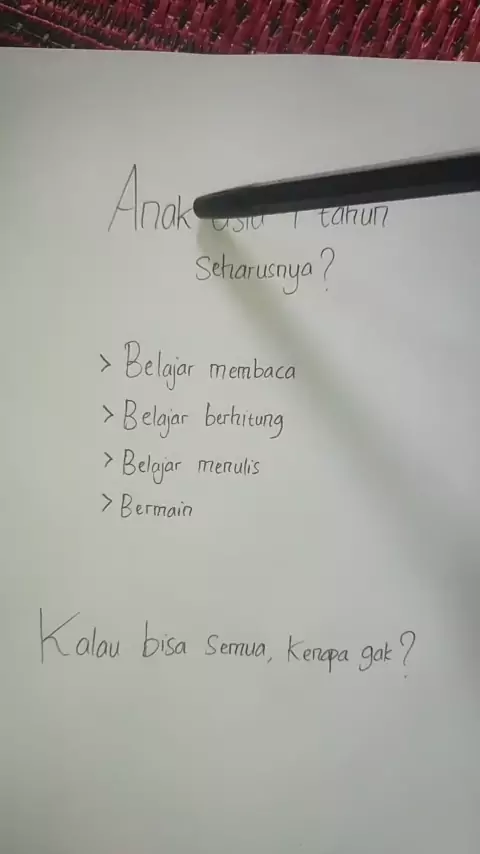 Anak usia 1 tahun
Seharusnya?
> Belajar membaca
> Belajar berhitung
> Belajar menulis
> Bermain
Kalau bisa semua, Kenapa gak?